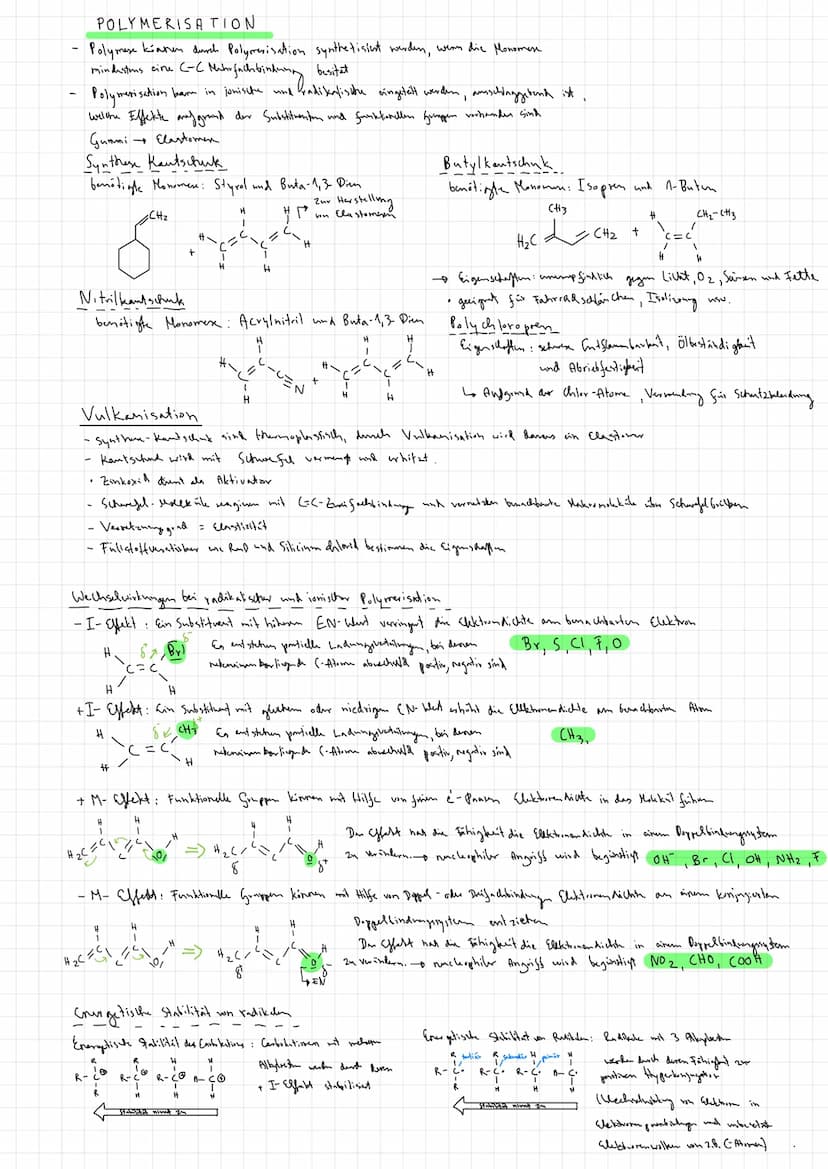 POLYMERISATION
- Polymere können durch Polymerisation synthetisiert werden, wenn die Monomere
mindestens eine C-C Mehrfachbindung besitzt
- Polymerisation kann in ionische und radikalische eingeteilt werden, ausschlaggebend ist,
welche Effekte aufgrund der Substituenten und funktionellen Gruppen vorhanden sind
Gummi → Elastomere
Synthese Kautschuk
benötigte Monomere: Styrol und Buta-1,3-Dien
zur Herstellung
von Elastomeren
CH2
+
H H H
C C C C
H H H
Butylkautschuk
benötigte Monomere: Isopren und 1-Buten
CH3
H2C CH2 +
H CH2-CH3
C=C
H H
→ Eigenschaften: unempfindlich gegen Licht, O2, Säuren und Fette
• geeignet für Fahrradschläuchen, Isolierung usw.
Nitrilkautschuk
benötigte Monomere: Acrylnitril und Buta-1,3-Dien
H H H
H C C C N + H C C C C H
H H H
Polychloropren
Eigenschaften: schwere Entflammbarkeit, Ölbeständigkeit
und Abriebfestigkeit
↳ Aufgrund der Chlor-Atome, Verwendung für Schutzkleidung
Vulkanisation
- Synthese-Kautschuk sind thermoplastisch, durch Vulkanisation wird daraus ein Elastomer
- Kautschuk wird mit Schwefel vermengt und erhitzt.
• Zinkoxid dient als Aktivator
- Schwefel-Moleküle reagieren mit C=C-Zweifachbindung und vernetzten benachbarte Makromoleküle über Schwefelbrücken
- Vernetzungsgrad = Elastizität
- Füllstoffverstärker wie Ruß und Silicium bestimmen die Eigenschaften
Wechselwirkungen bei radikalischer und ionischer Polymerisation
- I-Effekt: Ein Substituent mit höherem EN-Wert verringert die Elektronendichte am benachbarten Elektron
H δ+ Br δ-
C=C
H H
Es entstehen partielle Ladungsverteilungen, bei denen
nebeneinanderliegende C-Atome abwechselnd positiv, negativ sind
Br, S, Cl, F, O
+I-Effekt: Ein Substituent mit gleichem oder niedrigem EN-Wert erhöht die Elektronendichte am benachbarten Atom
H δ- CH3 δ+
C=C
H H
Es entstehen partielle Ladungsverteilungen, bei denen
nebeneinanderliegende C-Atome abwechselnd positiv, negativ sind
CH3,
+ M-Effekt: Funktionelle Gruppen können mit Hilfe von freien e⁻-Paaren Elektronendichte in das Molekül führen
H H H
H2C C C C O ⇒ H2C C C C O H
δ- δ+
Der Effekt hat die Fähigkeit die Elektronendichte in einem Doppelbindungssystem
zu verändern → nucleophiler Angriff wird begünstigt OH⁻, Br, Cl, OH, NH2, F
- M-Effekt: Funktionelle Gruppen können mit Hilfe von Doppel- oder Dreifachbindung Elektronendichte an einem konjugierten
Doppelbindungssystem entziehen
H H H
H2C C C C O ⇒ H2C C C C O H
δ+ δ-
↳ EN
Der Effekt hat die Fähigkeit die Elektronendichte in einem Doppelbindungssystem
zu verändern → nucleophiler Angriff wird begünstigt NO2, CHO, COOH
Energetische Stabilität von Radikalen
Energetische Stabilität des Carbokations: Carbokationen mit mehreren
Alkylresten werden durch deren
+ I-Effekt stabilisiert
R R H H
R-C⊕ R-C⊕ R-C⊕ H-C⊕
R H H H
Stabilität nimmt zu
Energetische Stabilität von Radikalen: Radikale mit 3 Alkylresten
werden durch deren Fähigkeit zur
positiven Hyperkonjugation
(Wechselwirkung von Elektron in
R tertiär R sekundär H primär H
R-C• R-C• R-C• H-C•
R H H H
Stabilität nimmt zu
Elektronenwolken von z.B. C-Atomen)